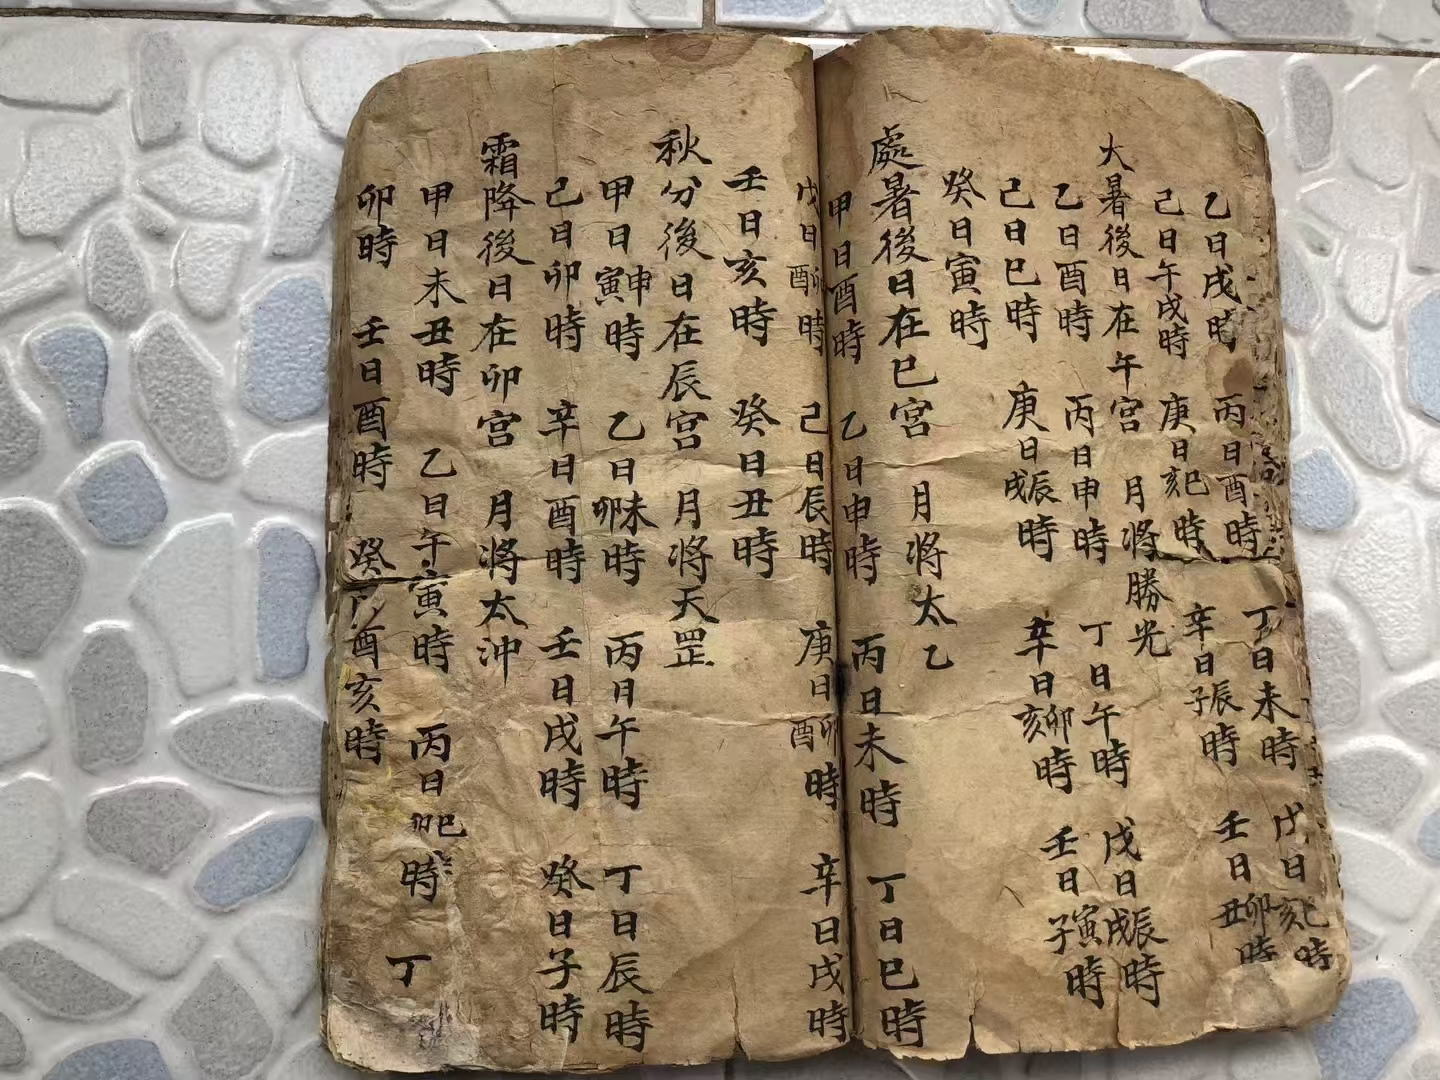 乙日戌時 丙日酉時 丁日未時 戊日巳亥時
己日午戌時 庚日巳亥時 辛日辰子時 壬日卯丑時
大暑後日在午宮 月將勝光
乙日酉時 丙日申時 丁日午時 戊日辰戌時
己日巳時 庚日辰戌時 辛日卯亥時 壬日寅子時
癸日寅時
處暑後日在巳宮 月將太乙
甲日酉時 乙日申時 丙日未時 丁日巳時
戊日卯酉時 己日辰時 庚日卯酉時 辛日戌時
壬日亥時 癸日丑時
秋分後日在辰宮 月將天罡
甲日申寅時 乙日未卯時 丙日午時 丁日辰時
己日卯時 辛日酉時 壬日戌時 癸日子時
霜降後日在卯宮 月將太沖
甲日未丑時 乙日午寅時 丙日巳卯時 丁
卯時 壬日酉時 癸酉亥時